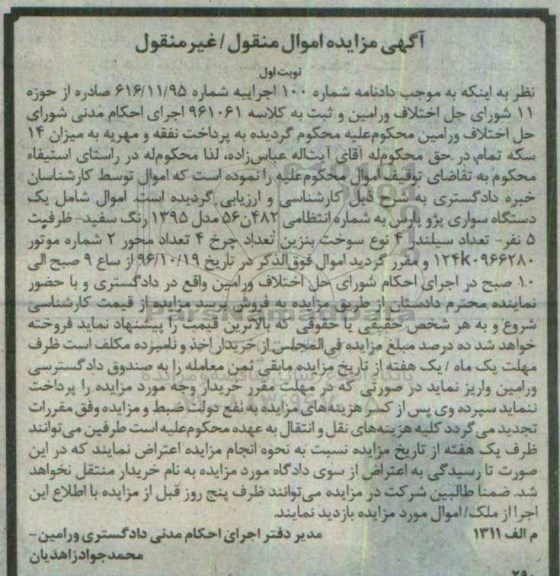 آگهی مزایده اموال منقول / غیر منقول
نوبت اول
نظر به اینکه به موجب دادنامه شماره ۱۰۰ اجراییه شماره ۶۱۶/۱۱/۹۵ صادره از حوزه
۱۱ شورای حل اختلاف ورامین و ثبت به کلاسه ۹۶۱۰۶۱ اجرای احکام مدنی شورای
حل اختلاف ورامین محکوم‌علیه محکوم گردیده به پرداخت نفقه و مهریه به میزان ۱۴
سکه تمام، در حق محکوم‌له آقای آیت‌اله عباس‌زاده، لذا محکوم‌له در راستای استیفاء
محکوم به تقاضای توقیف اموال محکوم‌علیه را نموده است که اموال توسط کارشناسان
خبره دادگستری به شرح ذیل کارشناسی و ارزیابی گردیده است. اموال شامل یک
دستگاه سواری پژو پارس به شماره انتظامی ۴۸۲ن۵۶ مدل ۱۳۹۵ رنگ سفید- ظرفیت
۵ نفر- تعداد سیلندر ۴ نوع سوخت بنزین تعداد چرخ ۴ تعداد محور ۲ شماره موتور
۱۲۴k۰۹۶۶۲۸۰ و مقرر گردید اموال فوق‌الذکر در تاریخ ۹۶/۱۰/۱۹ از ساع ۹ صبح الی
۱۰ صبح در اجرای احکام شورای حل اختلاف ورامین واقع در دادگستری و با حضور
نماینده محترم دادستان از طریق مزایده به فروش برسد مزایده از قیمت کارشناسی
شروع و به هر شخص حقیقی یا حقوقی که بالاترین قیمت را پیشنهاد نماید فروخته
خواهد شد ده درصد مبلغ مزایده فی‌المجلس از خریدار اخذ و نامبرده مکلف است ظرف
مهلت یک ماه / یک هفته از تاریخ مزایده مابقی ثمن معامله را به صندوق دادگستری
ورامین واریز نماید در صورتی که در مهلت مقرر خریدار وجه مورد مزایده را پرداخت
ننماید سپرده وی پس از کسر هزینه‌های مزایده به نفع دولت ضبط و مزایده وفق مقررات
تجدید می‌گردد کلیه هزینه‌های نقل و انتقال به عهده محکوم‌علیه است طرفین می‌توانند
ظرف یک هفته از تاریخ مزایده نسبت به نحوه انجام مزایده اعتراض نمایند که در این
صورت تا رسیدگی به اعتراض از سوی دادگاه مورد مزایده به نام خریدار منتقل نخواهد
شد. ضمنا طالبین شرکت در مزایده می‌توانند ظرف پنج روز قبل از مزایده با اطلاع این
اجرا از ملک/ اموال مورد مزایده بازدید نمایند.
م الف ۱۳۱۱ مدیر دفتر اجرای احکام مدنی دادگستری ورامین-
محمدجواد زاهدیان
ParsNamadData